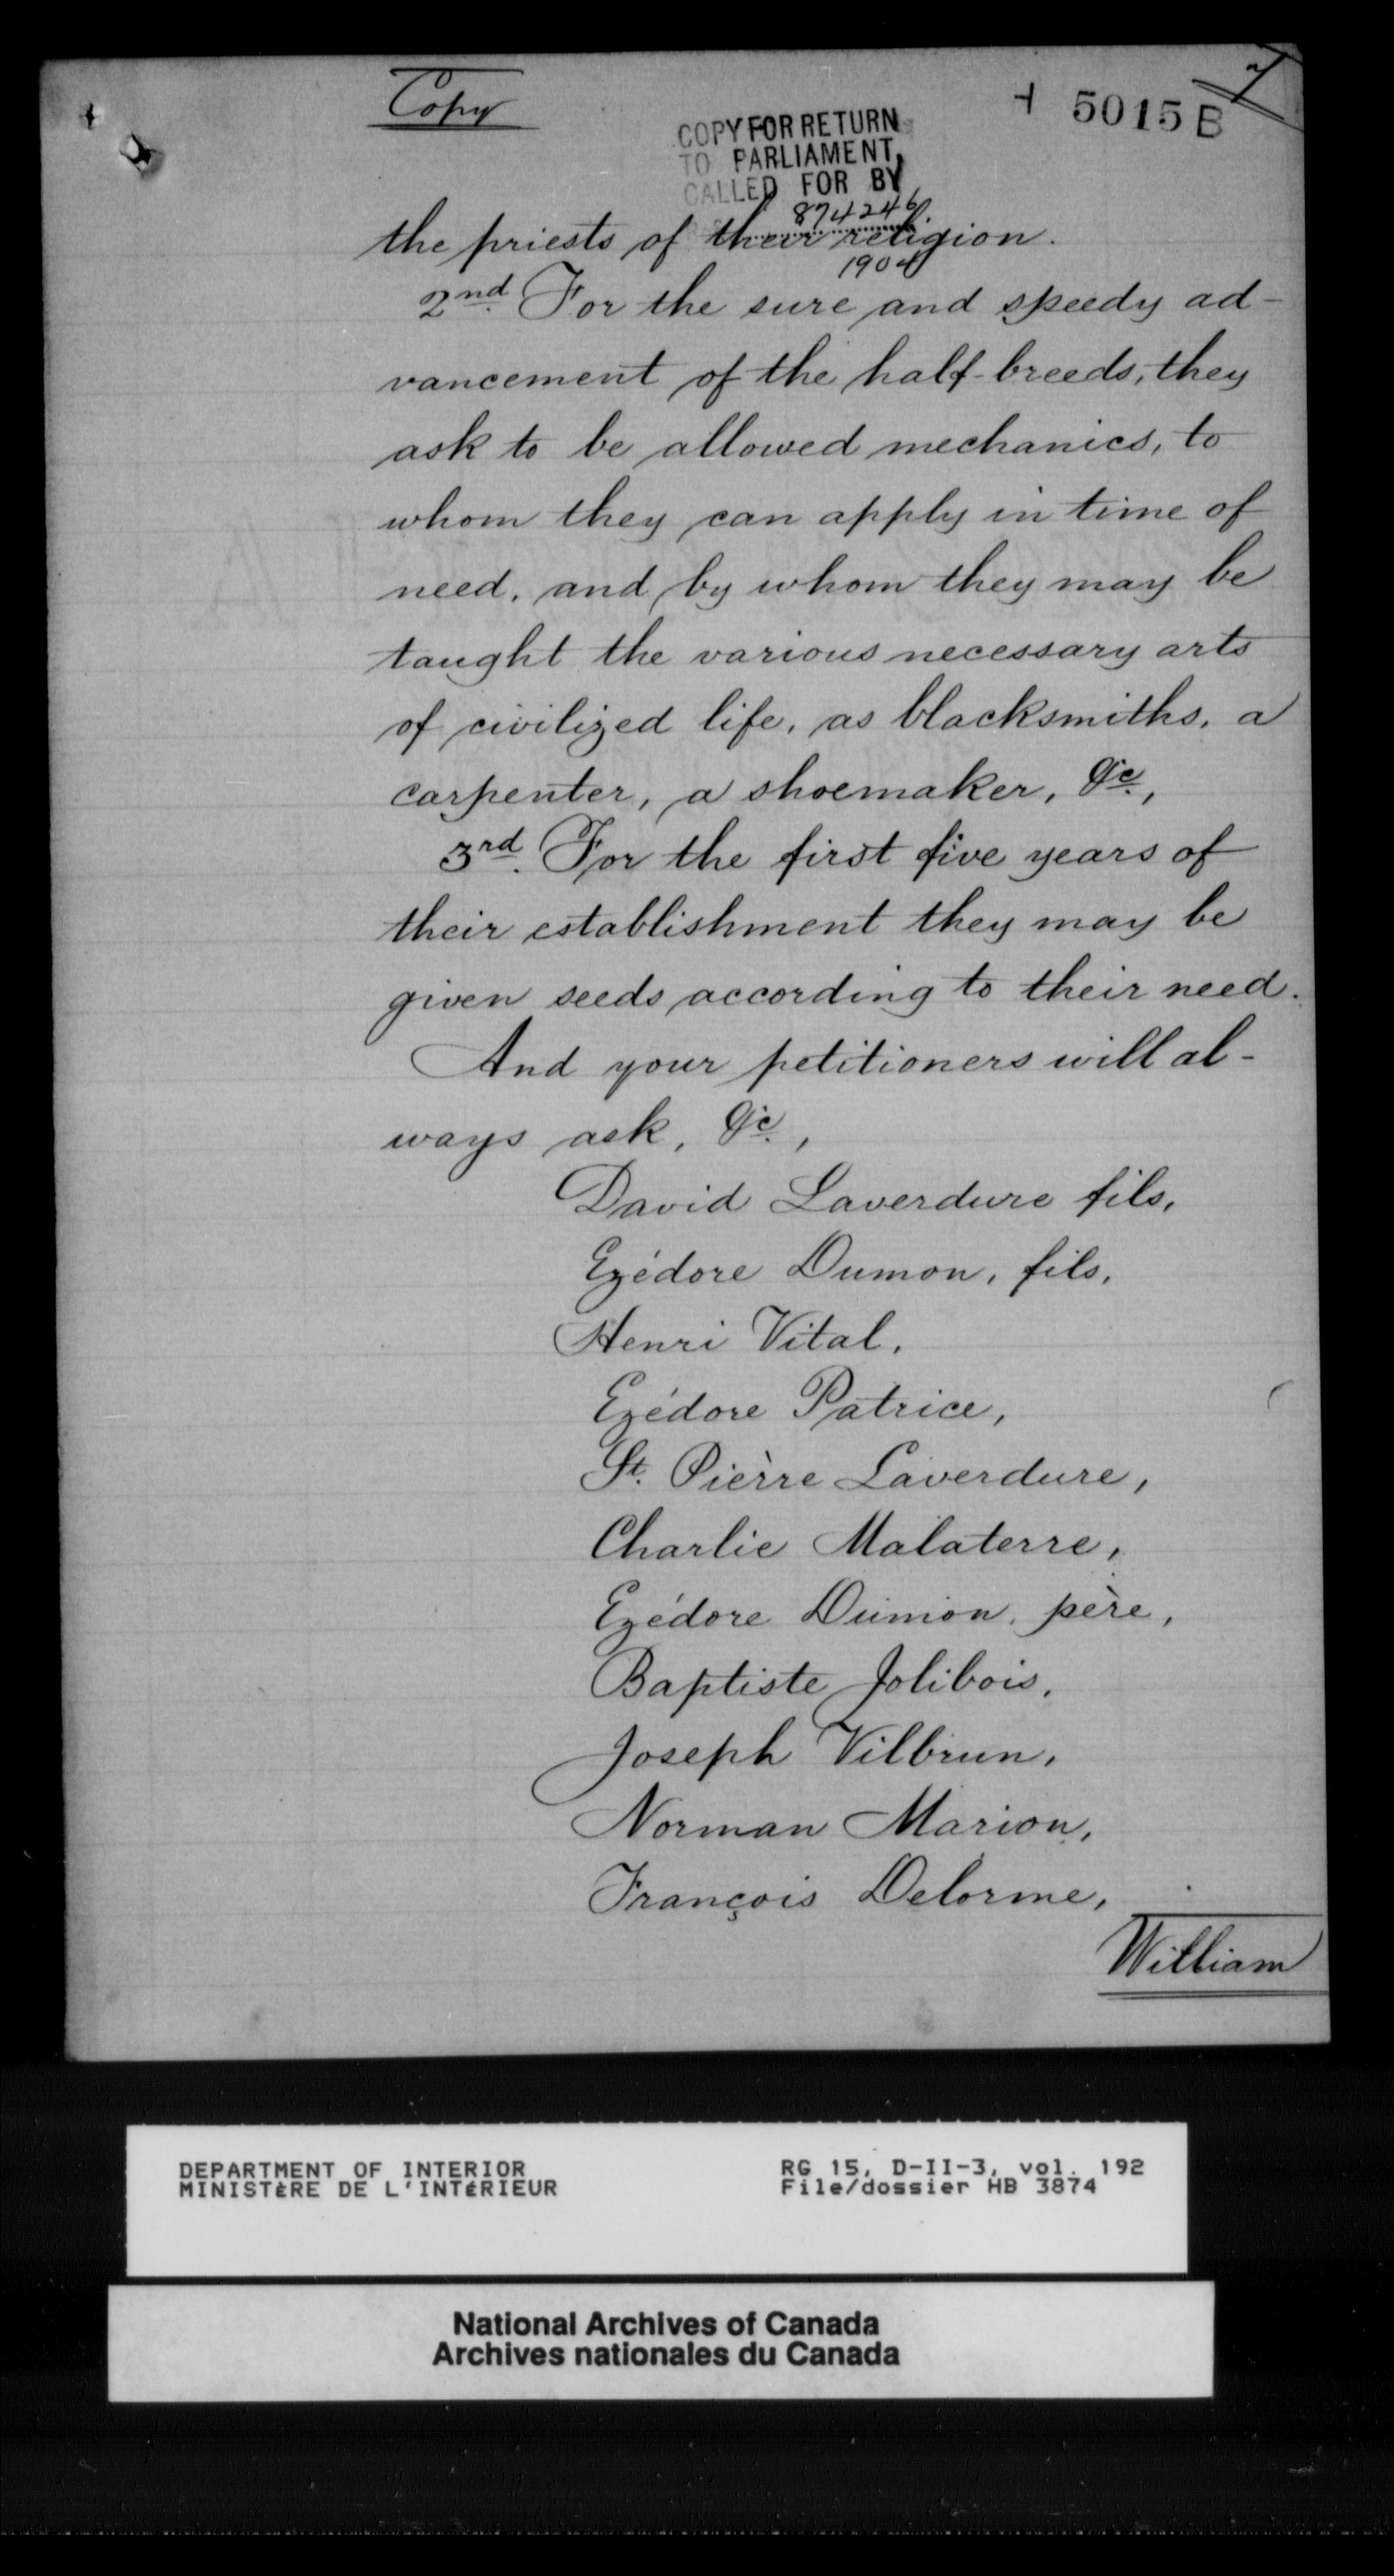 Copy
7
5015 B
COPY FOR RETURN
TO PARLIAMENT,
CALLED FOR BY
874246
the priests of their religion.
1904
2nd. For the sure and speedy ad-
vancement of the half-breeds, they
ask to be allowed mechanics, to
whom they can apply in time of
need, and by whom they may be
taught the various necessary arts
of civilized life, as blacksmiths, a
carpenter, a shoemaker, &c.,
3rd. For the first five years of
their establishment they may be
given seeds according to their need.
And your petitioners will al-
ways ask, &c.,
David Laverdure fils,
Ezédore Dumon, fils,
Henri Vital,
Ezédore Patrice,
St. Pièrre Laverdure,
Charlie Malaterre,
Ezédore Dumon, père,
Baptiste Jolibois,
Joseph Vilbrun,
Norman Marion,
François Delorme,
William
DEPARTMENT OF INTERIOR
MINISTÈRE DE L'INTÉRIEUR
RG 15, D-II-3, vol. 192
File/dossier HB 3874
National Archives of Canada
Archives nationales du Canada